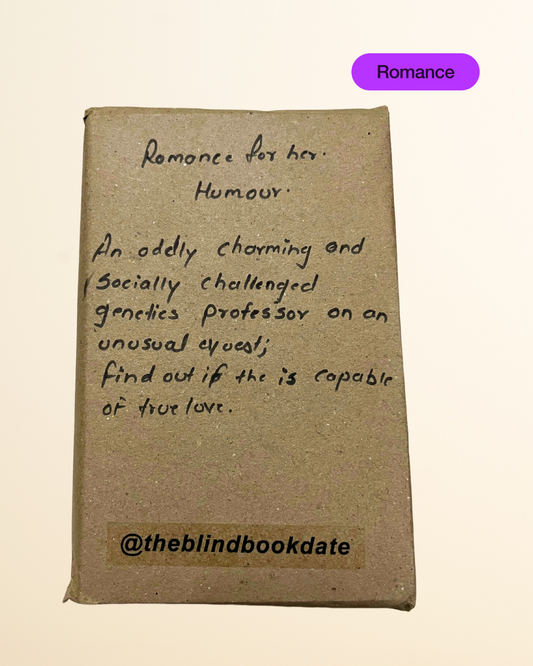 Romance
Romance for her.
Humour.
An oddly charming and
Socially challenged
genetics professor on an
unusual quest;
find out if the is capable
of true love.
@theblindbookdate